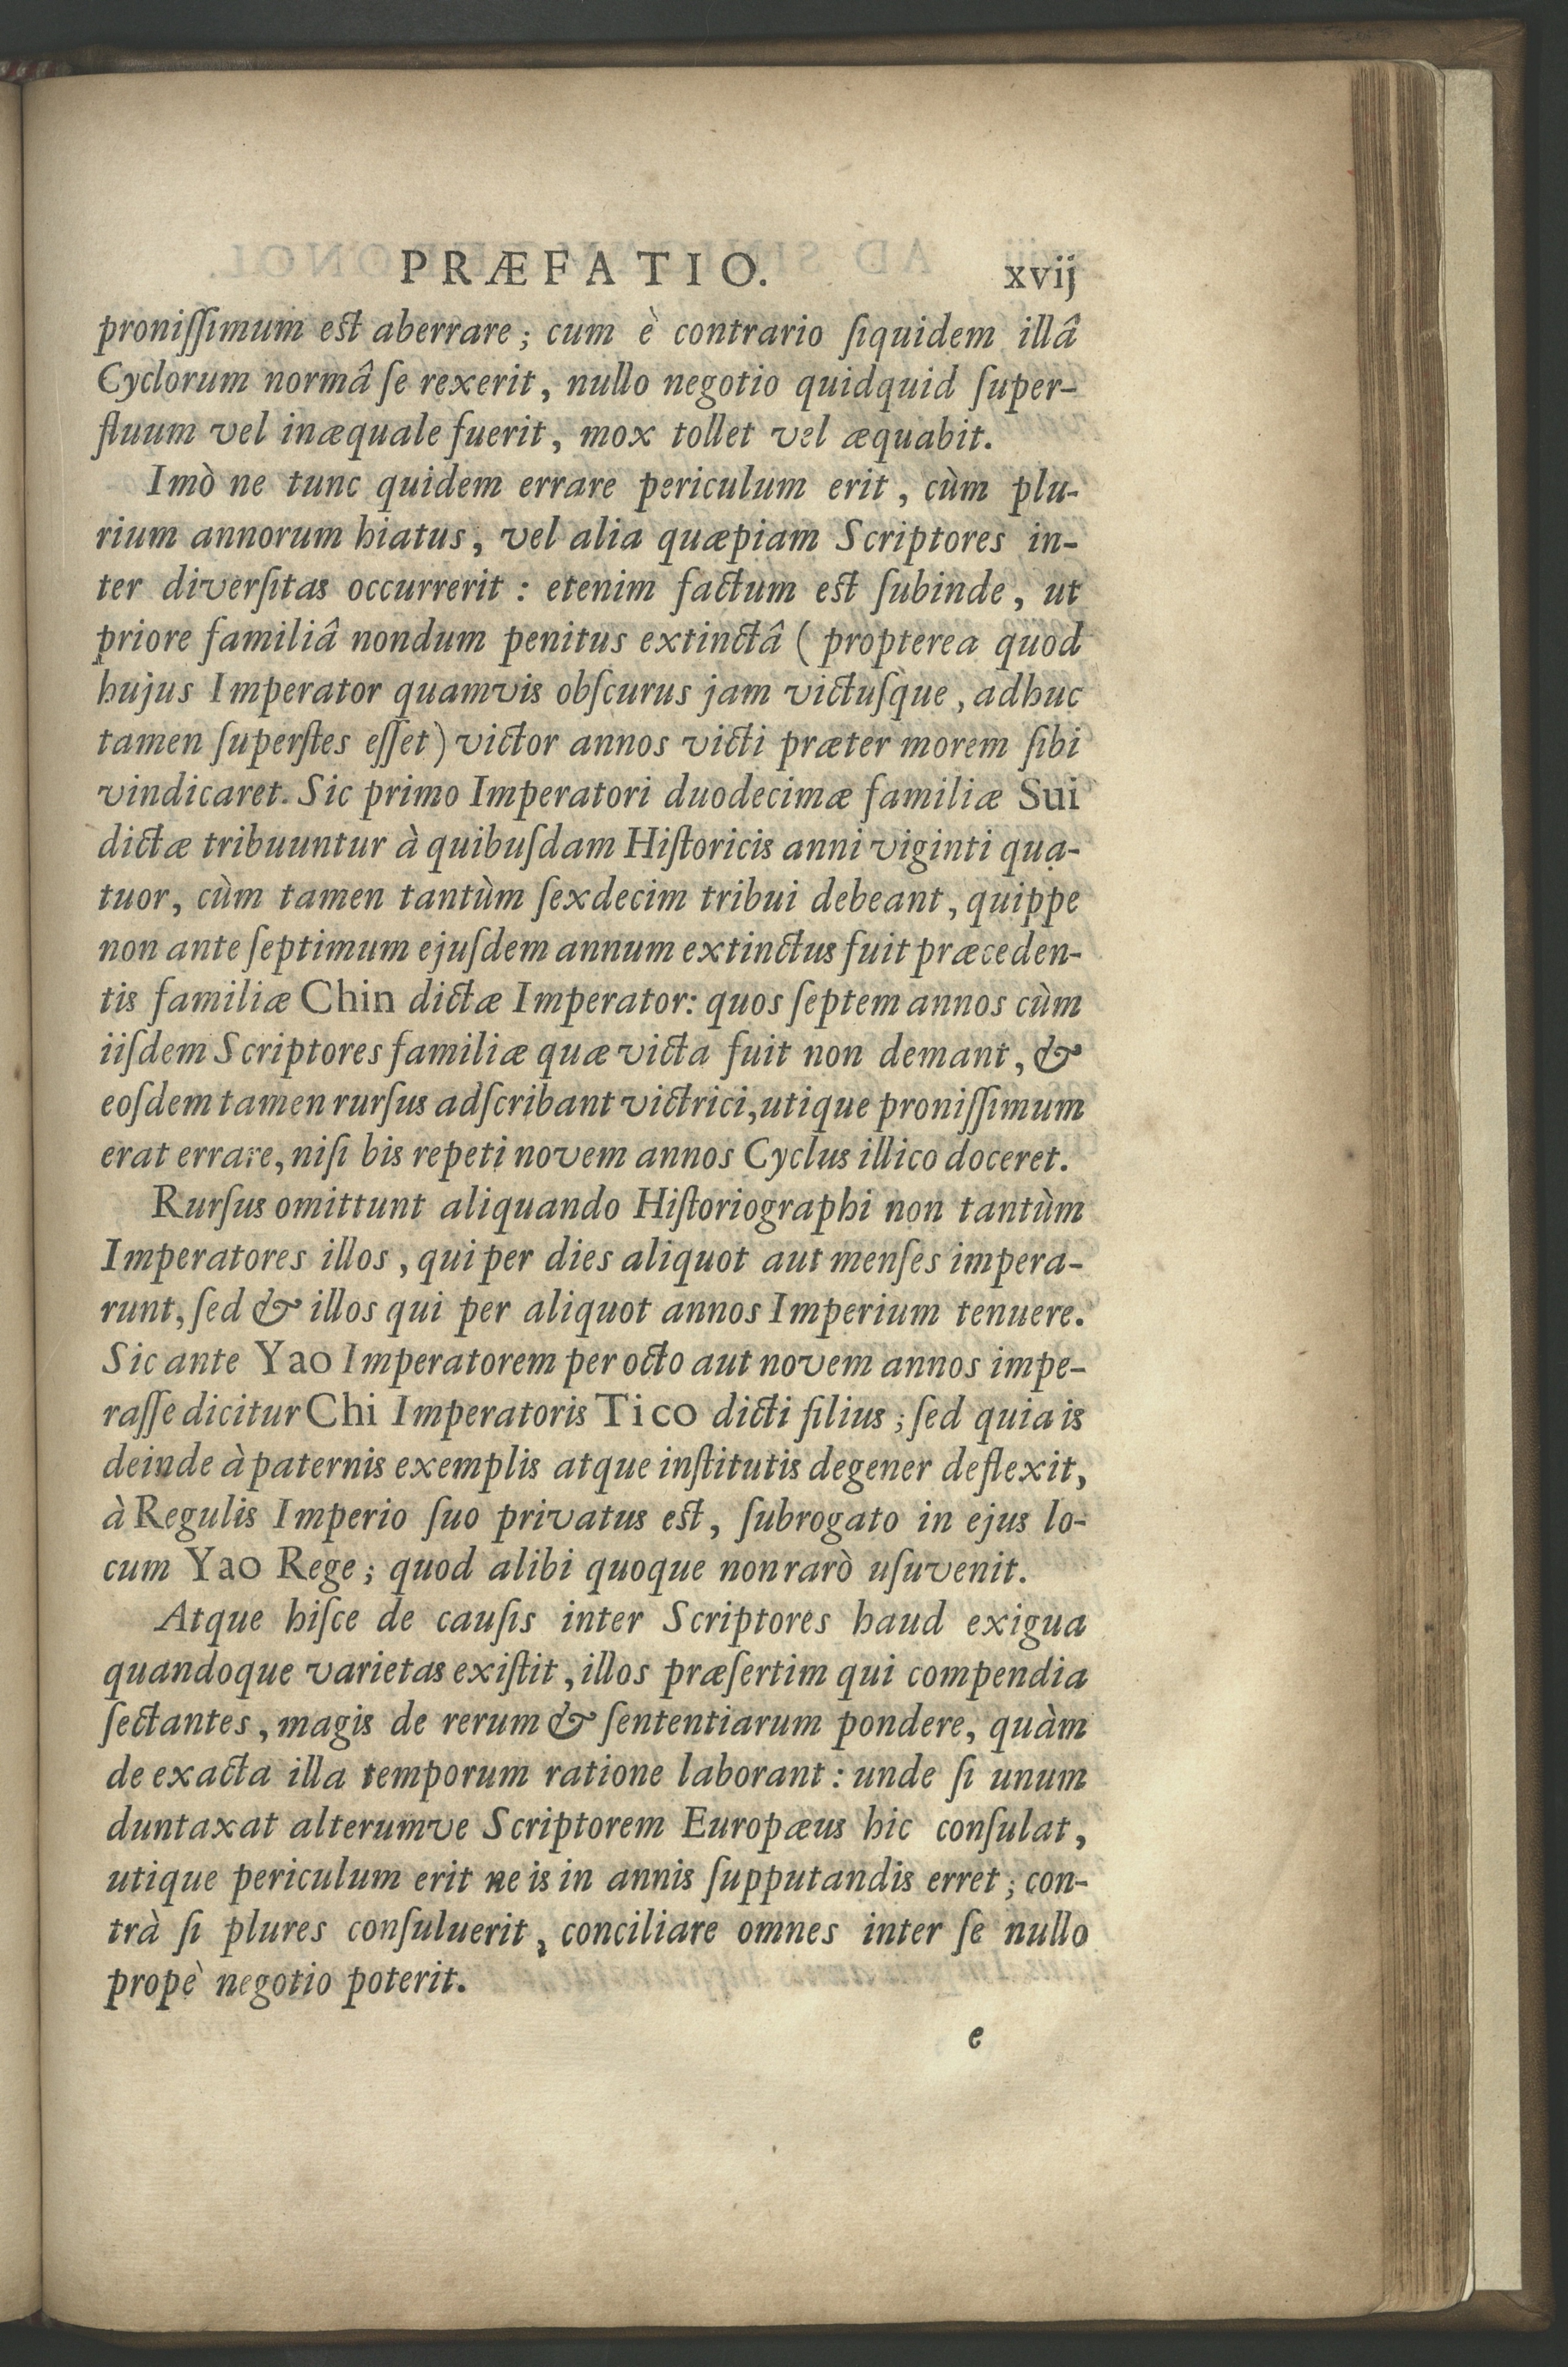 PRÆFATIO. xvij
proniſſimum est aberrare; cum è contrario ſiquidem illâ
Cyclorum normâ ſe rexerit, nullo negotio quidquid ſuper-
fluum vel inæquale fuerit, mox tollet vel æquabit.
Imò ne tunc quidem errare periculum erit, cùm plu-
rium annorum hiatus, vel alia quæpiam Scriptores in-
ter diverſitas occurrerit: etenim factum est ſubinde, ut
priore familiâ nondum penitus extinctâ (propterea quod
hujus Imperator quamvis obſcurus jam victuſque, adhuc
tamen ſuperſtes eſſet) victor annos victi præter morem ſibi
vindicaret. Sic primo Imperatori duodecimæ familiæ Sui
dictæ tribuuntur à quibuſdam Hiſtoricis anni viginti qua-
tuor, cùm tamen tantùm ſexdecim tribui debeant, quippe
non ante ſeptimum ejuſdem annum extinctus fuit præceden-
tis familiæ Chin dictæ Imperator: quos ſeptem annos cùm
iiſdem Scriptores familiæ quæ victa fuit non demant, &
eoſdem tamen rurſus adſcribant victrici, utique proniſſimum
erat errare, niſi bis repeti novem annos Cyclus illico doceret.
Rurſus omittunt aliquando Hiſtoriographi non tantùm
Imperatores illos, qui per dies aliquot aut menſes impera-
runt, ſed & illos qui per aliquot annos Imperium tenuere.
Sic ante Yao Imperatorem per octo aut novem annos impe-
raſſe dicitur Chi Imperatoris Tico dicti filius; ſed quia is
deinde à paternis exemplis atque inſtitutis degener deflexit,
à Regulis Imperio ſuo privatus est, ſubrogato in ejus lo-
cum Yao Rege; quod alibi quoque non rarò uſuvenit.
Atque hiſce de cauſis inter Scriptores haud exigua
quandoque varietas exiſtit, illos præſertim qui compendia
ſectantes, magis de rerum & ſententiarum pondere, quàm
de exacta illa temporum ratione laborant: unde ſi unum
duntaxat alterumve Scriptorem Europæus hic conſulat,
utique periculum erit ne is in annis ſupputandis erret; con-
trà ſi plures conſuluerit, conciliare omnes inter ſe nullo
propè negotio poterit.
e